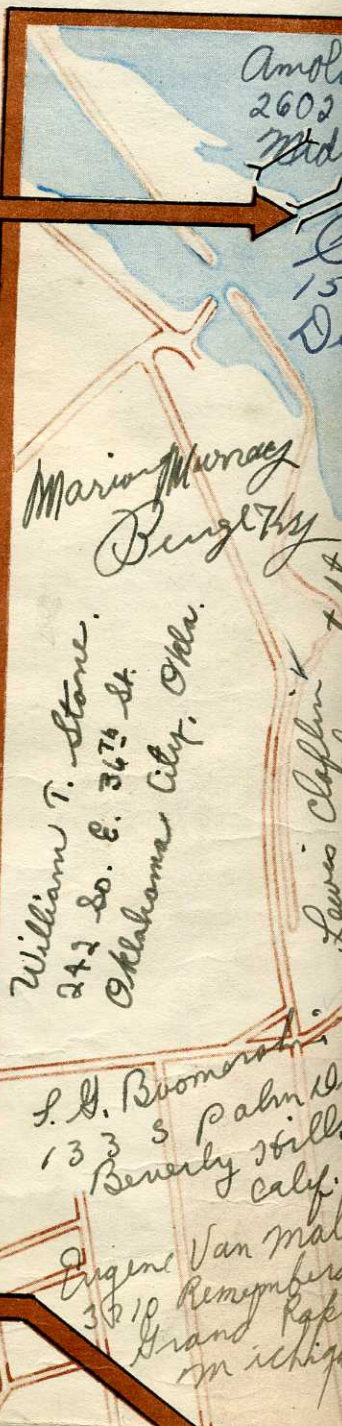 Arnol
2602
Mid
15
De
Marion Murray
William T. Stone.
242 So. E. 36th St.
Oklahoma City, Okla.
Lewis Claflin
133 S Palm D
Beverly Hills
Calif.
Eugene Van Mal
Grand Rap
Michiga